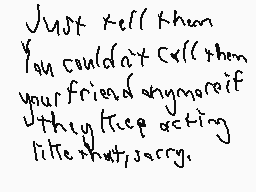 Just tell them
You couldn't call them
your friend anymore if
they keep acting
like that, sorry.